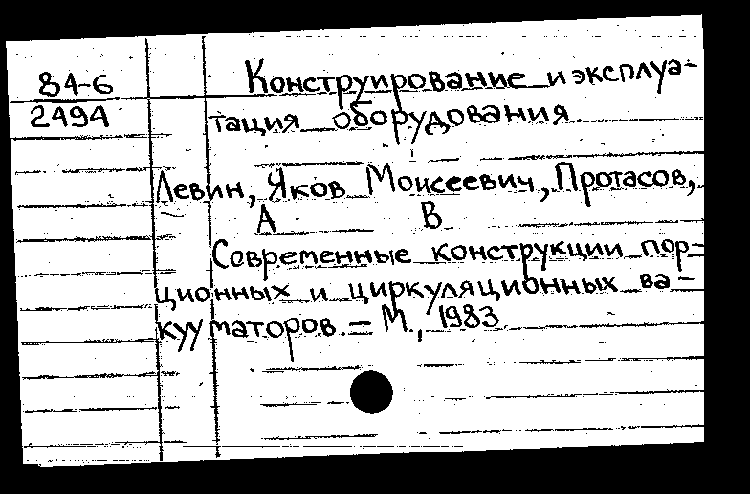 84-6
2494
Конструирование и эксплуа-
тация оборудования
Левин, Яков Моисеевич, Протасов,
А В
Современные конструкции пор-
ционных и циркуляционных ва-
кууматоров. – М., 1983